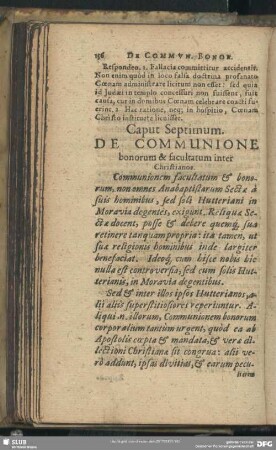 136 DE COMMVN. BONOR.
Responden. 1. Fallacia committitur accidentis.
Non enim quòd in loco falsa doctrina profanato
Cœnam administrare licitum non esset: sed quia
si Judæi in templo concessuri non fuissent, fuit
causa, cur in domibus Cœnam celebrare coacti fue-
rint. 2. Hac ratione, neq; in hospitio, Cœnam
Christo instituere licuisset.
Caput Septimum.
DE COMMUNIONE
bonorum & facultatum inter
Christianos.
Communionem facultatum & bono-
rum, non omnes Anabaptistarum Sectæ à
suis hominibus, sed soli Hutteriani in
Moravia degentes, exigunt. Reliquæ Se-
ctæ docent, posse & debere quemq́, sua
retinere tanquam propria: ita tamen, ut
suæ religionis hominibus inde largiter
benefaciat. Ideoq́, cum hisce nobis hic
nulla est controversia; sed cum solis Hut-
terianis, in Moravia degentibus.
Sed & inter illos ipsos Hutterianos, a-
lii aliis superstitiosiores reperiuntur. A-
liqui n. illorum, Communionem bonorum
corporalium tantùm urgent, quòd ea ab
Apostolis cœpta & mandata, & vera di-
lectioni Christianæ sit congrua: alii ve-
rò addunt, ipsas divitias, & earum pecu-